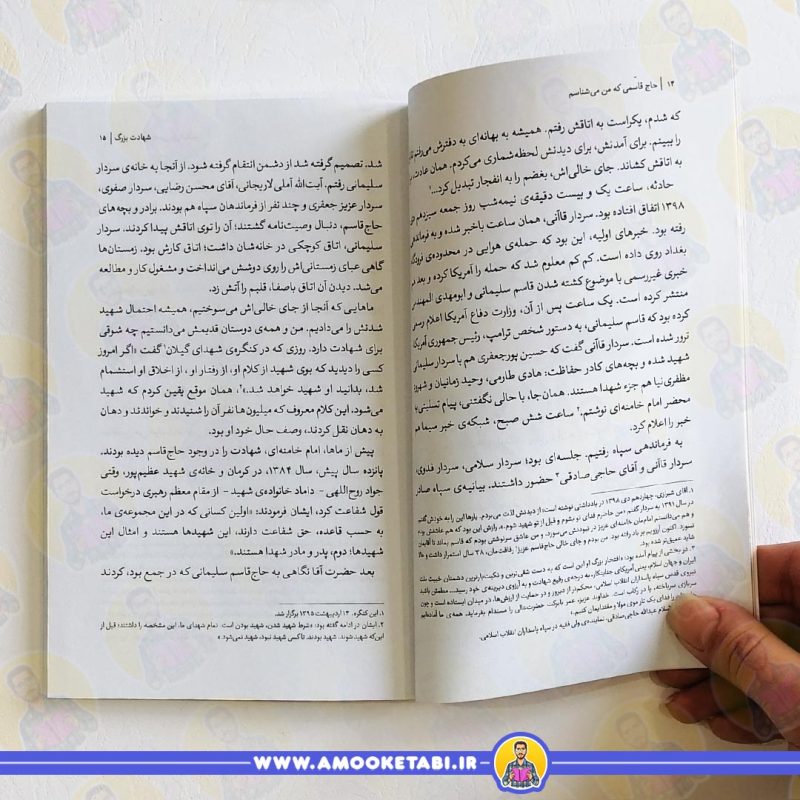 ۱۴ | حاج قاسمی که من می‌شناسم
که شدم، یکراست به اتاقش رفتم. همیشه به بهانه‌ای به دفترش می‌رفتم
را ببینم. برای آمدنش، برای دیدنش لحظه‌شماری می‌کردم. همان عادت،
به اتاقش کشاند. جای خالی‌اش، بغضم را به انفجار تبدیل کرد...۱
حادثه، ساعت یک و بیست دقیقه‌ی نیمه‌شب روز جمعه سیزدهم
۱۳۹۸ اتفاق افتاده بود. سردار قاآنی، همان ساعت باخبر شده و به فرماندهی
رفته بود. خبرهای اولیه، این بود که حمله‌ی هوایی در محدوده‌ی
بغداد روی داده است. کم کم معلوم شد که حمله را آمریکا کرده و بعد
خبری غیررسمی با موضوع کشته شدن قاسم سلیمانی و ابومهدی المهندس
منتشر کرده است. یک ساعت پس از آن، وزارت دفاع آمریکا اعلام رسمی
کرده بود که قاسم سلیمانی، به دستور شخص ترامپ، رئیس جمهوری آمریکا
ترور شده است. سردار قاآنی گفت که حسین پورجعفری هم با سردار سلیمانی
شهید شده و بچه‌های کادر حفاظت: هادی طارمی، وحید زمانیان و شهروز
مظفری‌نیا هم جزء شهدا هستند. همان‌جا، با حالی نگفتنی، پیام تسلیتی
محضر امام خامنه‌ای نوشتم.۲ ساعت شش صبح، شبکه‌ی خبر سیما هم
خبر را اعلام کرد.
به فرماندهی سپاه رفتیم. جلسه‌ای بود؛ سردار سلامی، سردار فدوی،
سردار قاآنی و آقای حاجی صادقی۳ حضور داشتند. بیانیه‌ی سپاه صادر
۱. آقای شیرازی، چهاردهم دی ۱۳۹۸ در یادداشتی نوشته است: از دیدنش لذت می‌بردم. بارها این را به خودش گفتم
عمیق‌تر شده بود.
نیروی قدس سپاه پاسداران انقلاب اسلامی،
عبدالله حاجی‌صادقی، نماینده‌ی ولی فقیه در سپاه پاسداران انقلاب اسلامی.
شهادت بزرگ | ۱۵
شد. تصمیم گرفته شد از دشمن انتقام گرفته شود. از آنجا به خانه‌ی سردار
سلیمانی رفتم. آیت‌الله آملی لاریجانی، آقای محسن رضایی، سردار صفوی،
سردار عزیز جعفری و چند نفر از فرماندهان سپاه هم بودند. برادر و بچه‌های
حاج‌قاسم، دنبال وصیت‌نامه گشتند؛ آن را توی اتاقش پیدا کردند. سردار
سلیمانی، اتاق کوچکی در خانه‌شان داشت؛ اتاق کارش بود. زمستان‌ها
گاهی عبای زمستانی‌اش را روی دوشش می‌انداخت و مشغول کار و مطالعه
می‌شد. دیدن آن اتاق باصفا، قلبم را آتش زد.
ماهایی که آنجا از جای خالی‌اش می‌سوختیم، همیشه احتمال شهید
شدنش را می‌دادیم. من و همه‌ی دوستان قدیمش می‌دانستیم چه شوقی
برای شهادت دارد. روزی که در کنگره‌ی شهدای گیلان۱ گفت «اگر امروز
کسی را دیدید که بوی شهید از کلام او، از رفتار او، از اخلاق او استشمام
شد، بدانید او شهید خواهد شد.»۲، همان موقع یقین کردم که شهید
می‌شود. این کلام معروف که میلیون‌ها نفر آن را شنیدند و خواندند و دهان
به دهان نقل کردند، وصف حال خود او بود.
پیش از ماها، امام خامنه‌ای، شهادت را در وجود حاج‌قاسم دیده بودند.
پانزده سال پیش، سال ۱۳۸۴، در کرمان و خانه‌ی شهید عظیم‌پور، وقتی
جواد روح‌اللهی - داماد خانواده‌ی شهید - از مقام معظم رهبری درخواست
قول شفاعت کرد، ایشان فرمودند: «اولین کسانی که در این مجموعه‌ی ما،
به حسب قاعده، حق شفاعت دارند، این شهیدها هستند و امثال این
شهیدها؛ دوم، پدر و مادر شهدا هستند.»
بعد حضرت آقا نگاهی به حاج‌قاسم سلیمانی که در جمع بود، کردند
۱. این کنگره، ۱۳ اردیبهشت ۱۳۹۵ برگزار شد.
۲. ایشان در ادامه گفته بود: «شرط شهید شدن، شهید بودن است. تمام شهدای ما، این مشخصه را داشتند؛ قبل از
این‌که شهید شوند، شهید بودند. تا کسی شهید نبود، شهید نمی‌شود.»
WWW.AMOOKETABI.IR